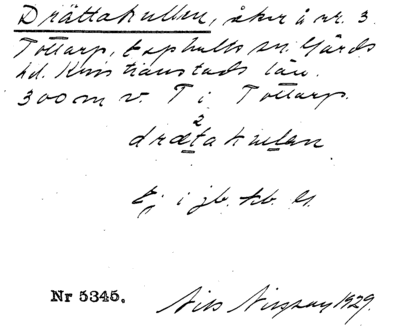 Drättakullen, åker å nr. 3
Tottarp, Loshults sn. Gärds
hd. Kristianstads län.
300 m v. T i Tottarp.
2
drætakulan
Ej i jb. kb. el.
Nr 5345.
Nils 1929.